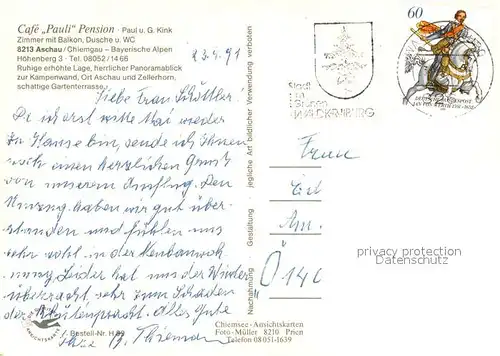 Café „Pauli" Pension · Paul u. G. Kink
Zimmer mit Balkon, Dusche u. WC
8213 Aschau / Chiemgau – Bayerische Alpen
Höhenberg 3 · Tel. 08052 / 14 66
Ruhige erhöhte Lage, herrlicher Panoramablick
zur Kampenwand, Ort Aschau und Zellerhorn,
schattige Gartenterrasse.
23.4.91
Liebe Frau
Da ich erst Mai wieder
zu Hause bin, sende ich Ihnen
einen herzlichen Gruß
von unserem Ausflug. Den
Umzug haben wir gut über-
standen und fühlen uns
sehr wohl in der Neubauwoh-
nung, Leider hat uns der Winter
überrascht, sehr zum Schaden
der Blütenpracht. Alles Gute
Ihre
Bestell-Nr. H 89
Nachahmung Gestaltung jegliche Art bildlicher Verwendung verboten
Chiemsee-Ansichtskarten
Foto-Müller 8210 Prien
Telefon 08051-1639
Stadt
im
Grünen
60
Frau
Am
privacy protection
Datenschutz